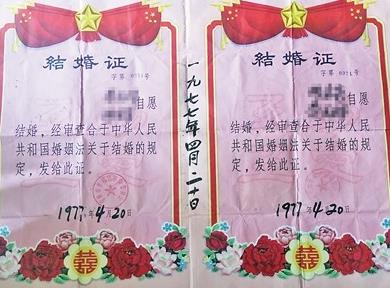 结婚证
字第0371号
自愿
结婚，经审查合于中华人民
共和国婚姻法关于结婚的规
定，发给此证。
1977年4月20日
囍
一九七七年四月二十日
结婚证
字第0371号
自愿
结婚，经审查合于中华人民
共和国婚姻法关于结婚的规
定，发给此证。
1977年4月20日
囍